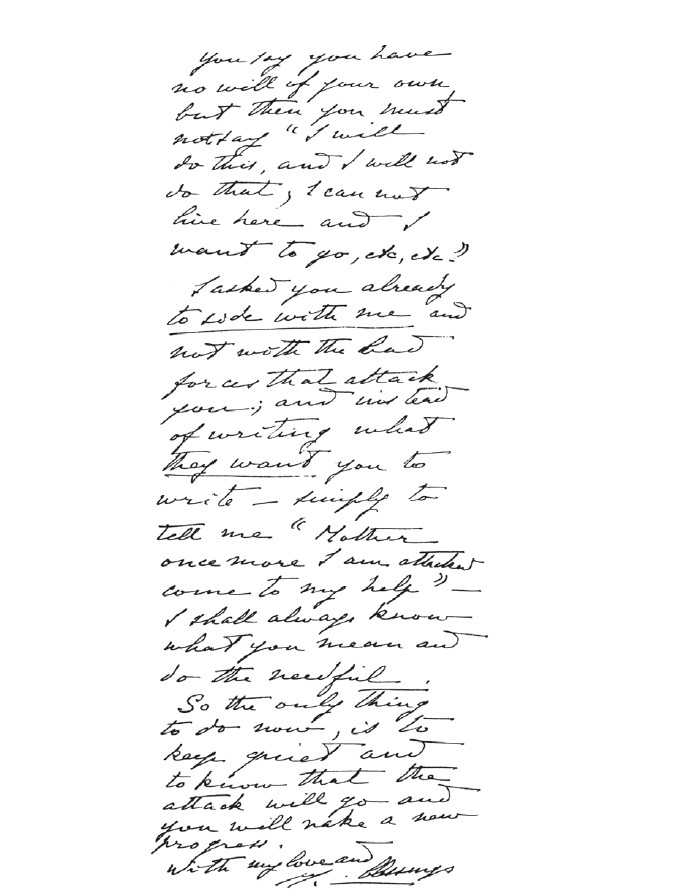 You say you have
no will of your own
but then you must
not say "I will
do this, and I will not
do that, I can not
live here and I
want to go, etc, etc."
I asked you already
to side with me and
not with the bad
forces that attack
you; and instead
of writing what
they want you to
write – simply to
tell me "Mother
once more I am attacked
come to my help" –
I shall always know
what you mean and
do the needful.
So the only thing
to do now, is to
keep quiet and
to know that the
attack will go and
you will make a new
progress.
With my love and blessings